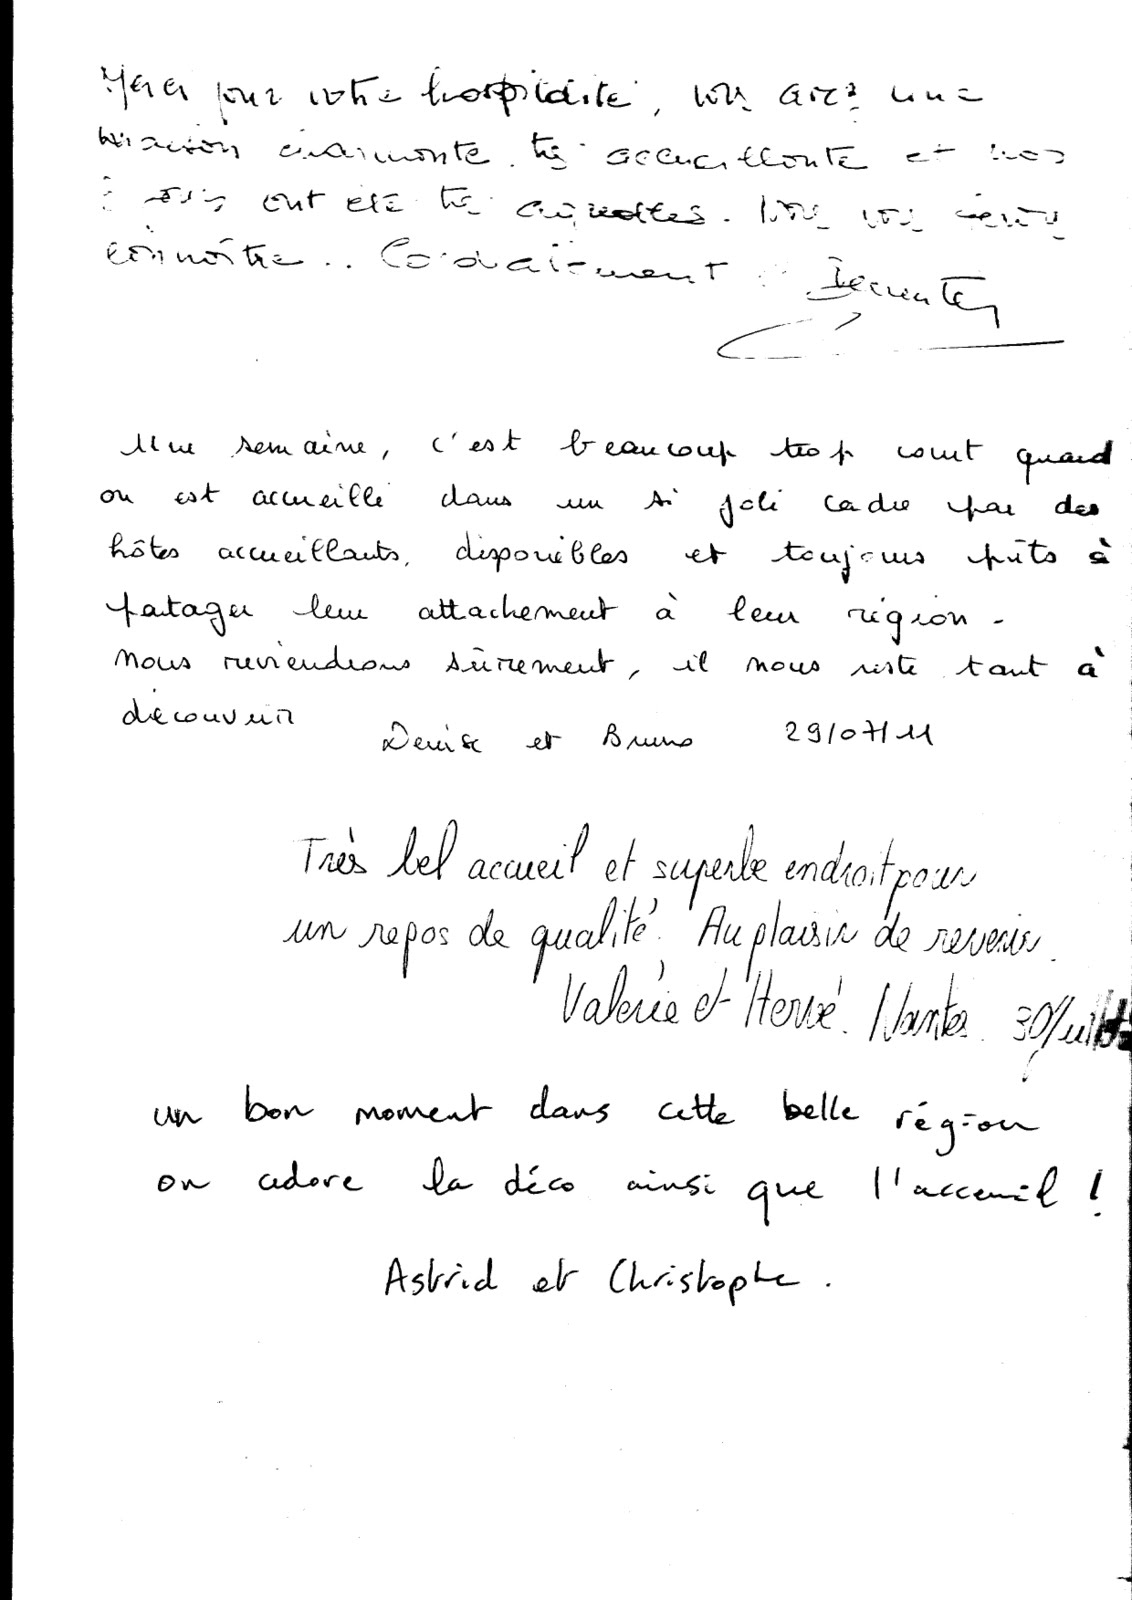 Merci pour votre hospitalité, vous avez une
maison charmante très accueillante et nos
ont été très agréables. vous
connaître.. Cordialement
Une semaine, c'est beaucoup trop court quand
on est accueilli dans un si joli cadre par des
hôtes accueillants, disponibles et toujours prêts à
partager leur attachement à leur région.
Nous reviendrons sûrement, il nous reste tant à
découvrir
Denise et Bruno 29/07/11
Très bel accueil et superbe endroit pour
un repos de qualité. Au plaisir de revenir.
Valérie et Hervé. Nantes. 30/Juillet
un bon moment dans cette belle région
on adore la déco ainsi que l'acceuil !
Astrid et Christophe.